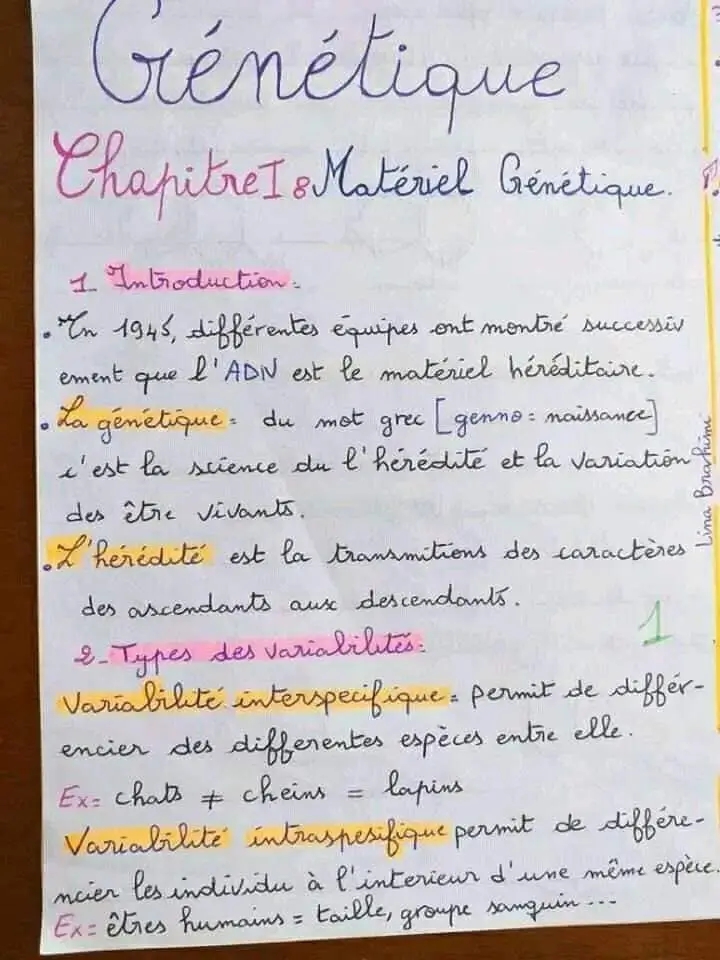 Génétique
Chapitre I : Matériel Génétique.
1. Introduction :
• En 1945, différentes équipes ont montré successiv
ement que l'ADN est le matériel héréditaire.
• La génétique = du mot grec [genno = naissance]
c'est la science du l'hérédité et la variation
des être vivants.
• L'hérédité est la transmitions des caractères
des ascendants aux descendants.
2- Types des variabilités :
Variabilité interspecifique = permit de différ-
encier des differentes espèces entre elle.
Ex = chats ≠ cheins = lapins
Variabilité intraspesifique permit de différe-
ncier les individu à l'interieur d'une même espèce.
Ex = êtres humains = taille, groupe sanguin ...
Lina Brahimi
1